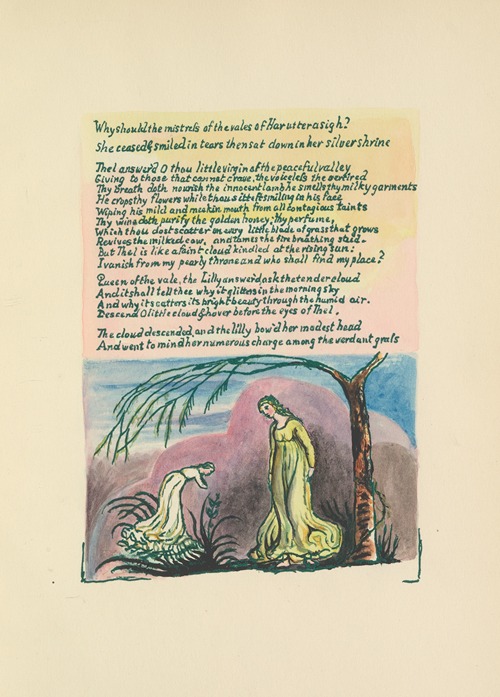 Why should the mistress of the vales of Har utter a sigh?
She ceasd & smiled in tears then sat down in her silver shrine
Thel answerd O thou little virgin of the peaceful valley
Giving to those that cannot crave, the voiceless the o'ertired
Thy breath doth nourish the innocent lamb he smells thy milky garments
He crops thy flowers while thou sittest smiling in his face
Wiping his mild and meekin mouth from all contagious taints
Thy wine doth purify the golden honey; thy perfume,
Which thou dost scatter on every little blade of grass that grows
Revives the milked cow, and tames the fire breathing steed.
But Thel is like a faint cloud kindled at the rising sun:
I vanish from my pearly throne and who shall find my place?
Queen of the vale, the Lilly answerd, ask the tender cloud
And it shall tell thee why it glitters in the morning sky
And why it scatters its bright beauty through the humid air.
Descend O little cloud & hover before the eyes of Thel.
The cloud descended, and the lilly bow'd her modest head
And went to mind her numerous charge among the verdant grass